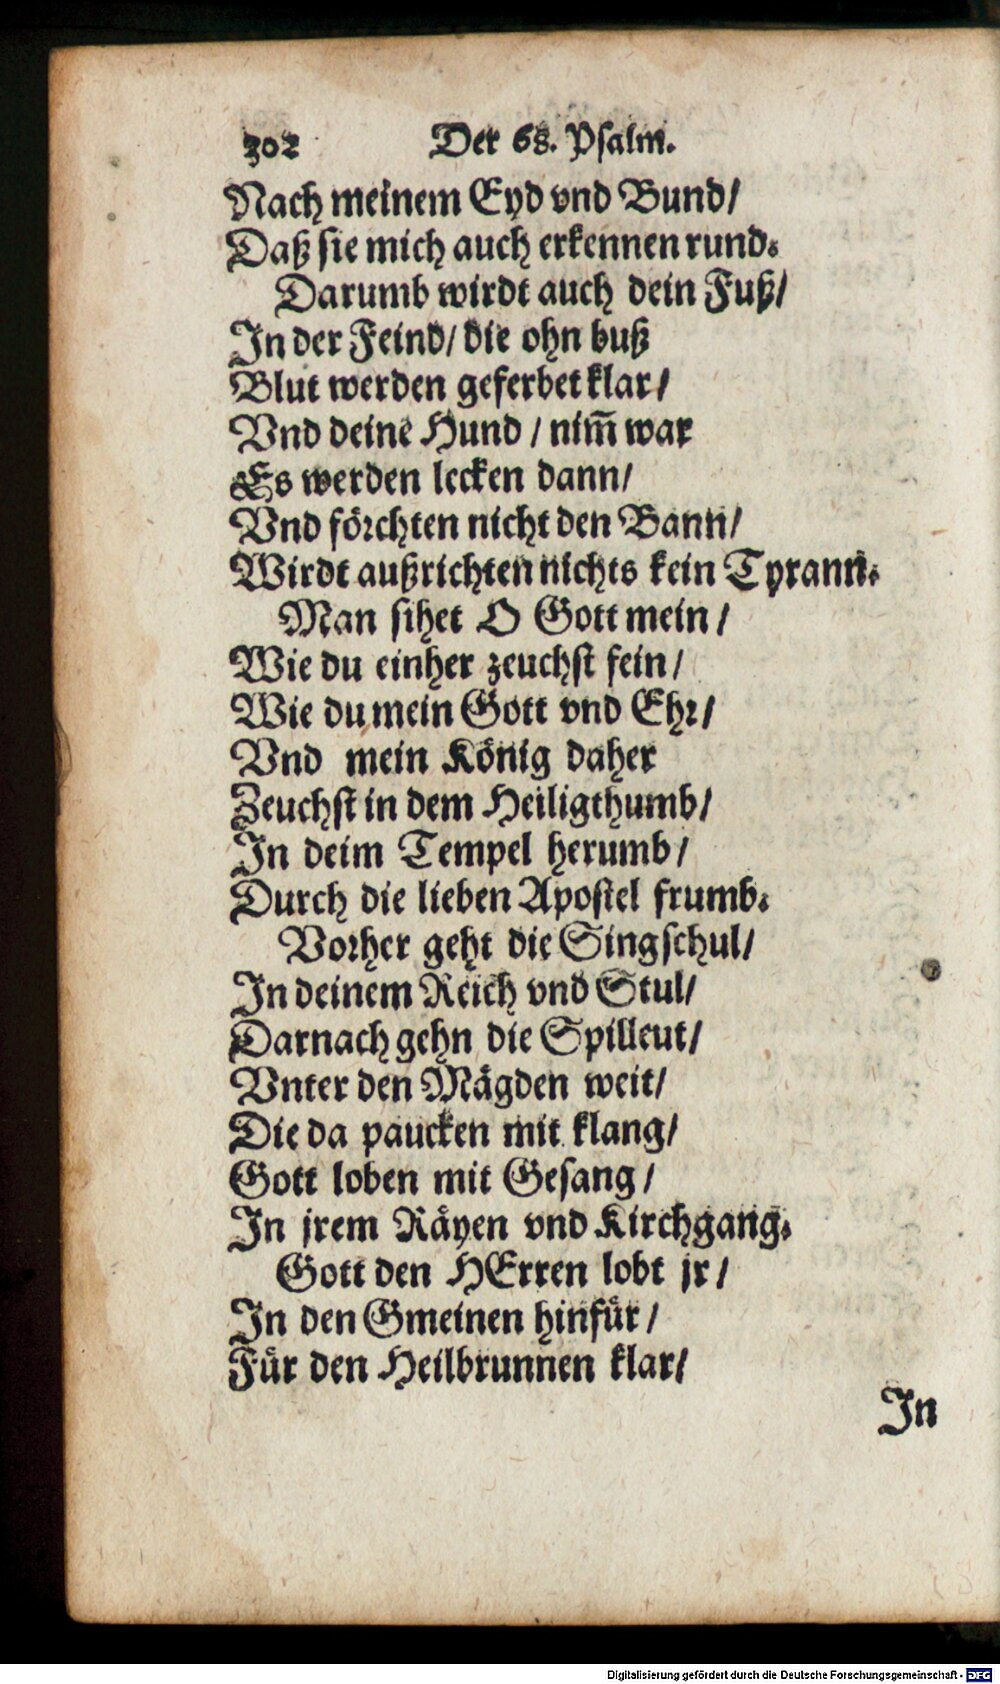 302 Der 68. Psalm.
Nach meinem Eyd vnd Bund/
Daß sie mich auch erkennen rund.
Darumb wirdt auch dein Fuß/
In der Feind/ die ohn buß
Blut werden geferbet klar/
Vnd deine Hund / nim̃ war
Es werden lecken dann/
Vnd förchten nicht den Bann/
Wirdt außrichten nichts kein Tyrann.
Man sihet O Gott mein /
Wie du einher zeuchst fein /
Wie du mein Gott vnd Ehr/
Vnd mein König daher
Zeuchst in dem Heiligthumb/
In deim Tempel herumb /
Durch die lieben Apostel frumb.
Vorher geht die Singschul/
In deinem Reich vnd Stul/
Darnach gehn die Spilleut/
Vnter den Mägden weit/
Die da paucken mit klang/
Gott loben mit Gesang /
In jrem Räyen vnd Kirchgang.
Gott den HErren lobt jr /
In den Gmeinen hinfür /
Für den Heilbrunnen klar/
In
Digitalisierung gefördert durch die Deutsche Forschungsgemeinschaft - DFG